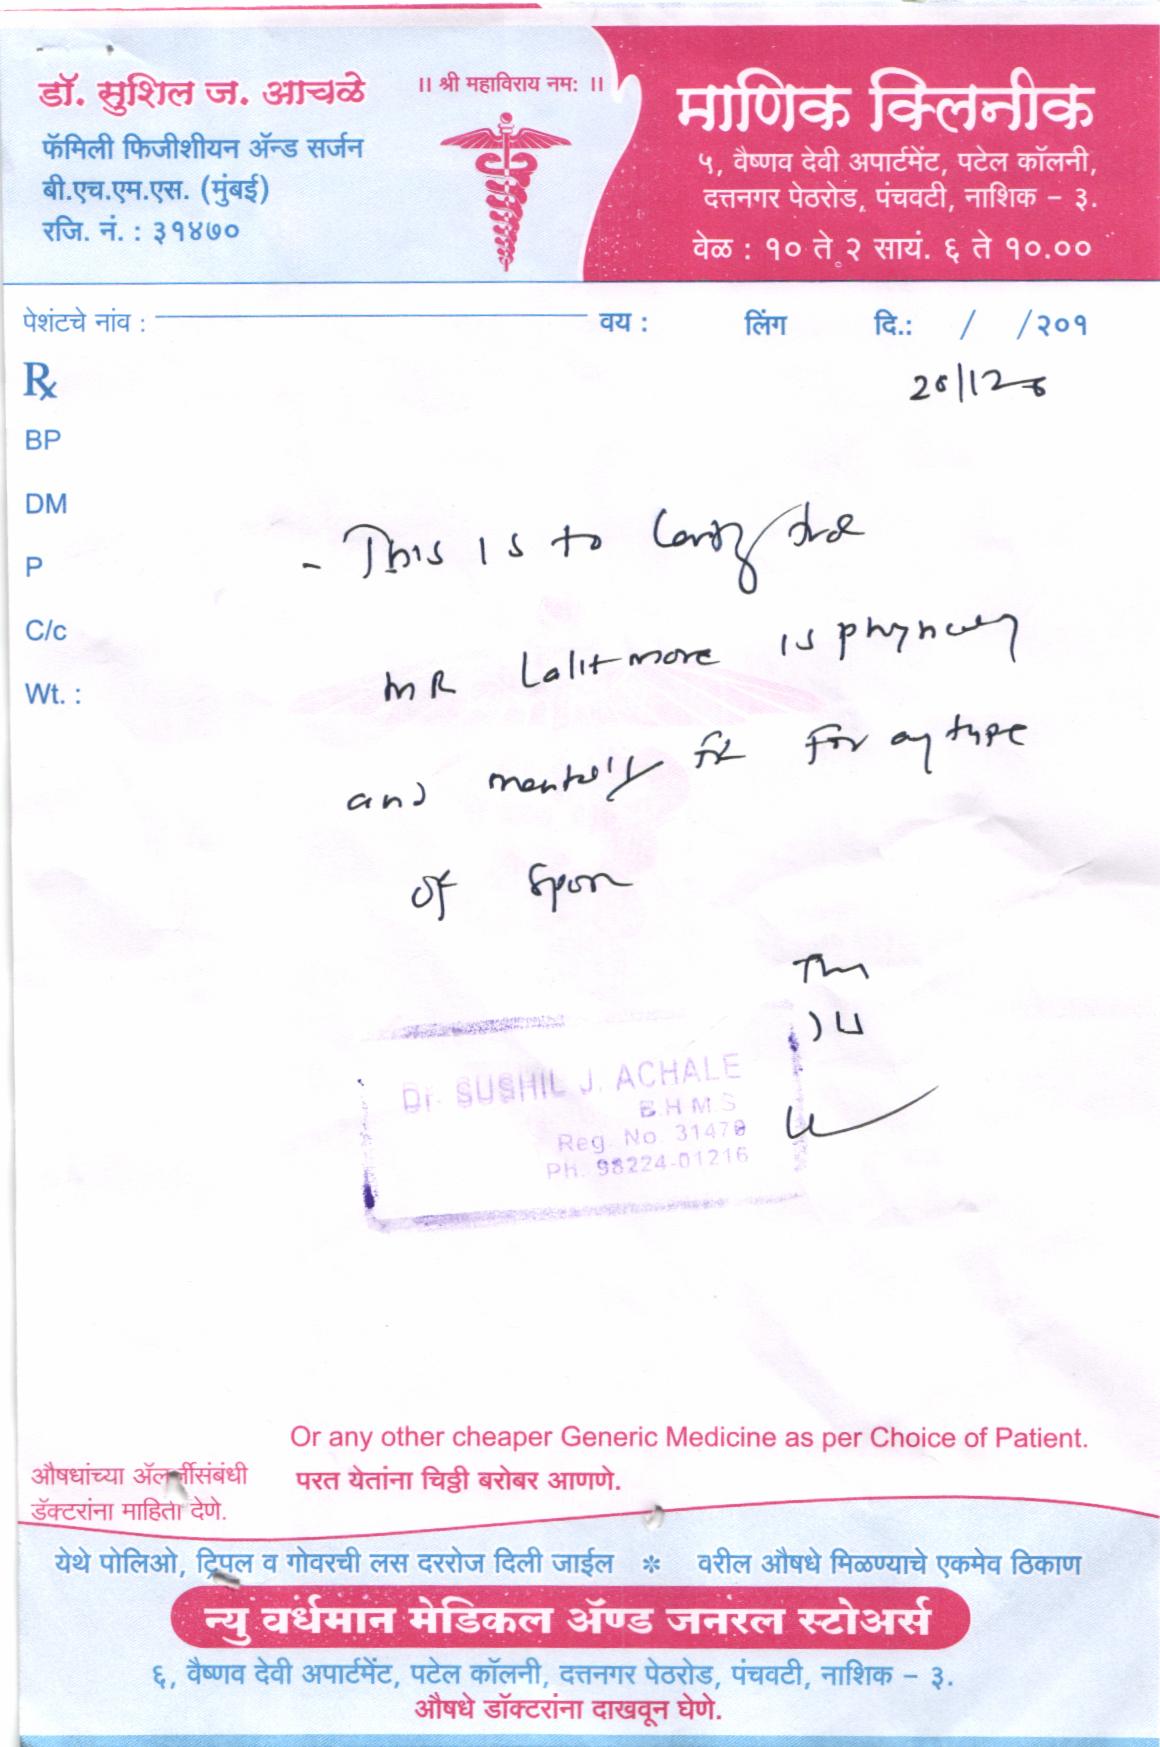 डॉ. सुशिल ज. आचळे
फॅमिली फिजीशीयन ॲन्ड सर्जन
बी.एच.एम.एस. (मुंबई)
रजि. नं. : ३१४७०
।। श्री महाविराय नम: ।।
माणिक क्लिनीक
५, वैष्णव देवी अपार्टमेंट, पटेल कॉलनी,
दत्तनगर पेठरोड, पंचवटी, नाशिक – ३.
वेळ : १० ते २ सायं. ६ ते १०.००
पेशंटचे नांव : वय : लिंग दि.: / /२०१
Rx
BP
DM
P
C/c
Wt. :
- This is to
MR Lalit more is
and mentally fit for any type
of
Dr. SUSHIL J. ACHALE
B.H.M.S
Reg. No. 31470
PH. 98224-01216
Or any other cheaper Generic Medicine as per Choice of Patient.
औषधांच्या ॲलर्जीसंबंधी
डॅक्टरांना माहिती देणे.
परत येतांना चिठ्ठी बरोबर आणणे.
येथे पोलिओ, ट्रिपल व गोवरची लस दररोज दिली जाईल * वरील औषधे मिळण्याचे एकमेव ठिकाण
न्यु वर्धमान मेडिकल ॲण्ड जनरल स्टोअर्स
६, वैष्णव देवी अपार्टमेंट, पटेल कॉलनी, दत्तनगर पेठरोड, पंचवटी, नाशिक – ३.
औषधे डॉक्टरांना दाखवून घेणे.